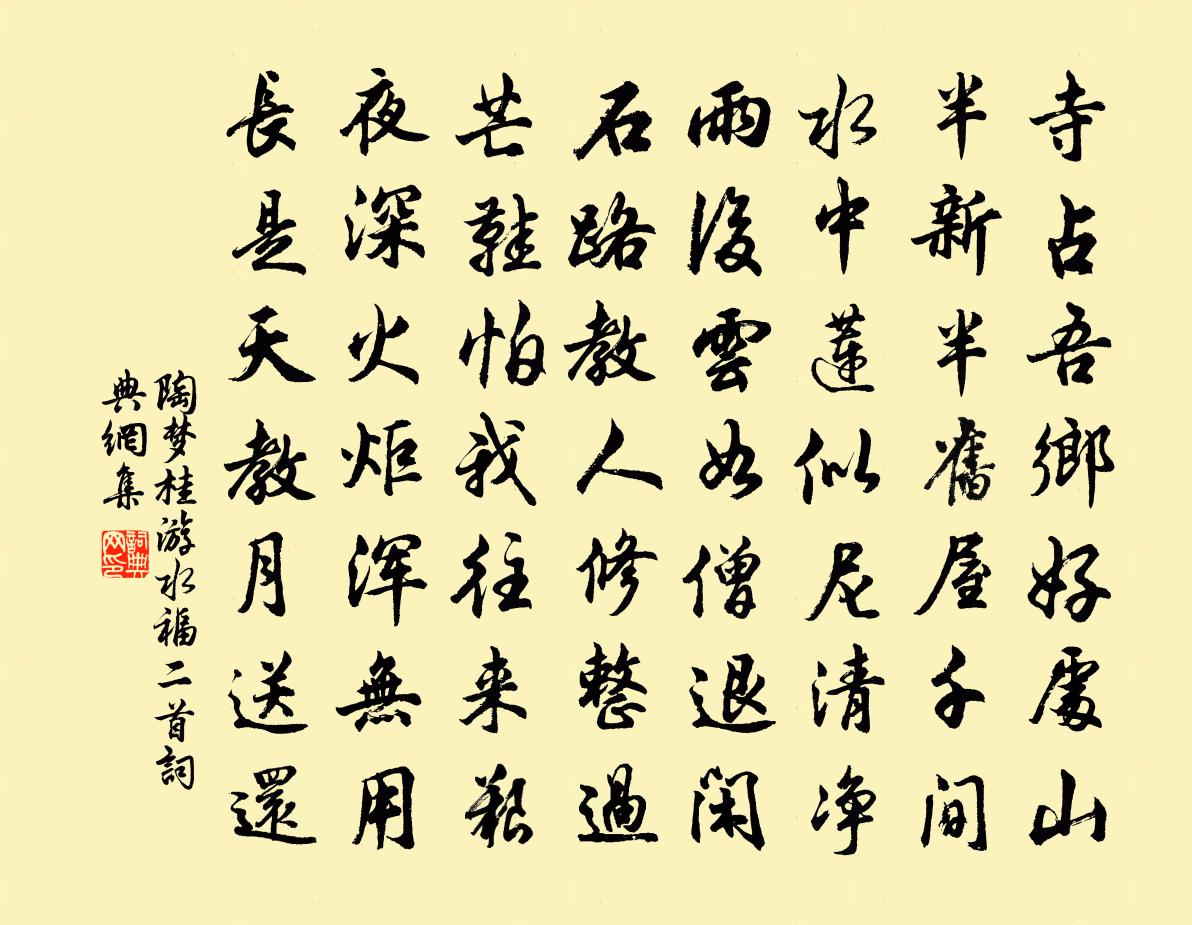 寺占吾鄉好處山
半新半舊屋千間
水中蓮似尼清净
雨後雲如僧退閑
石路教人修整過
芒鞋怕我往来艱
夜深火炬浑無用
長是天教月送還
陶梦桂游水福二首詞
典網集
詞典网印